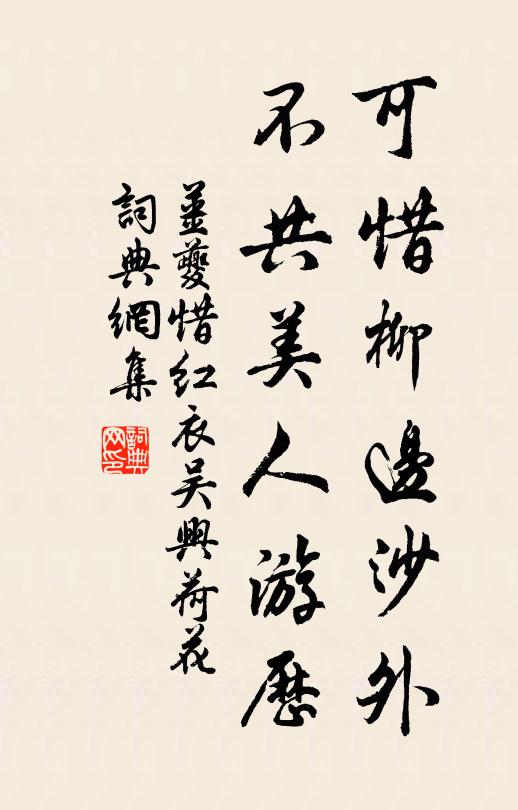 可惜柳邊沙外
不共美人游歷
薑夔惜紅衣吳興荷花
詞典網集
詞典網印